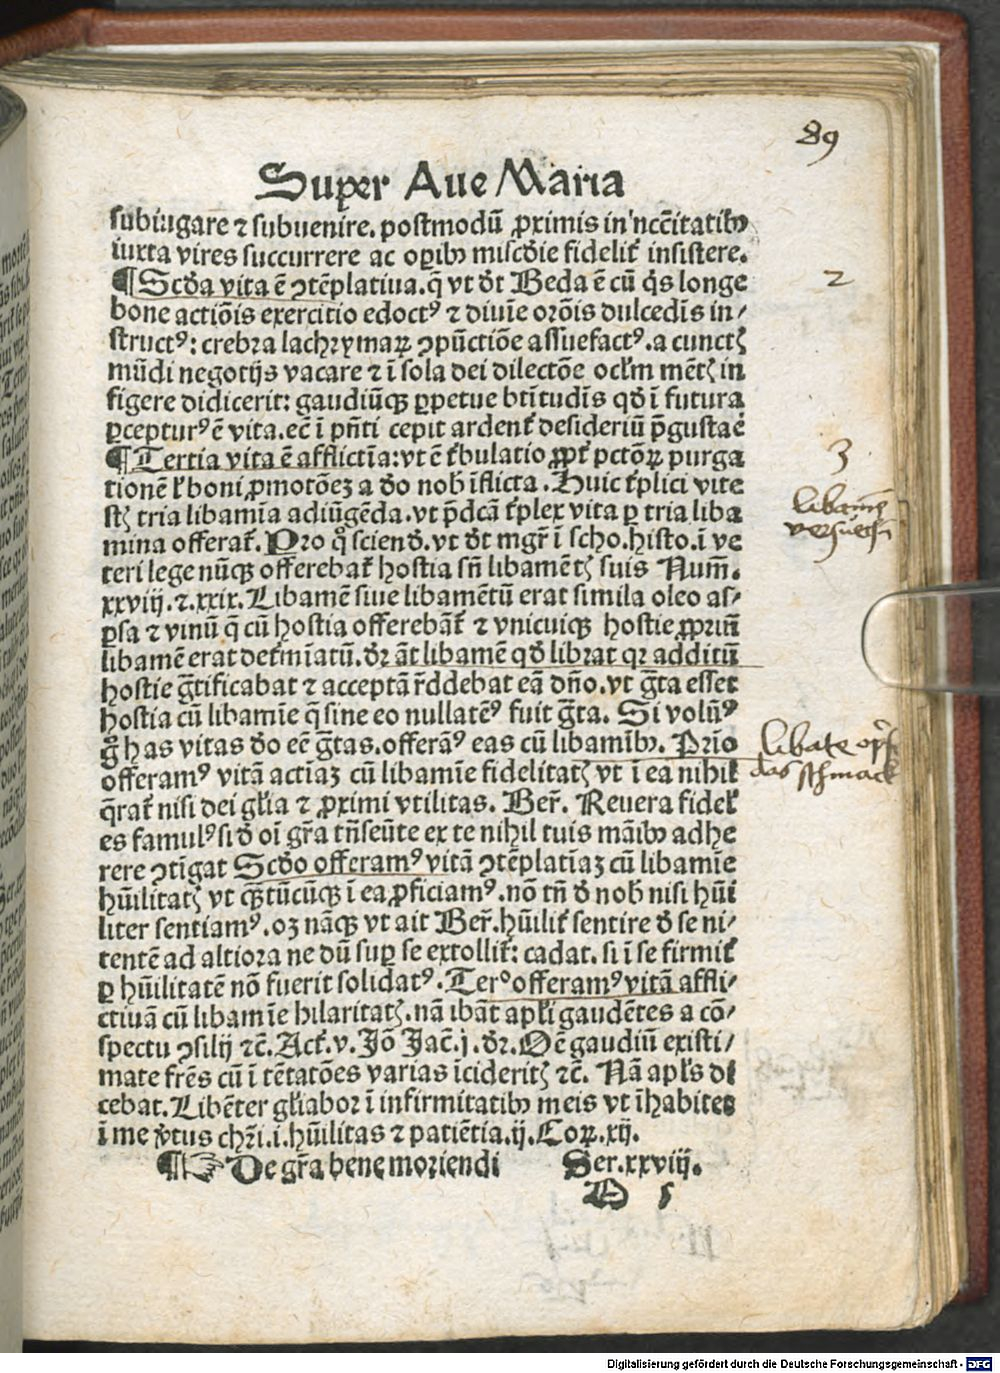 89
Super Aue Maria
subiugare ⁊ subuenire. postmodū ꝓximis in'nccītatibꝰ
iuxta vires succurrere ac oꝑibꝰ miscd̄ie fidelit̉ insistere.
¶ Scd̄a vita ē ↄtēplatiua. q̄ vt d̄t Beda ē cū q̇s longe
2
bone actiōis exercitio edoctꝰ ⁊ diuīe orōis dulcedīs in⸗
structꝰ: crebra lachrymaꝝ ↄpūctiōe assuefactꝰ. a cunctꝭ
mūdi negotijs vacare ⁊ ī sola dei dilectōe ocl̉m mētꝭ in
figere didicerit: gaudiūqꝫ ꝑpetue btītudīs qd̄ ī futura
ꝑcepturꝰ ē vita. ecē ī pn̄ti cepit ardent̉ desideriū p̄gustaē
¶ Tertia vita ē afflictīa: vt ē t̉bulatio ꝓpt̉ pctōꝝ purga
3
tionē l̉ boni ꝓmotōeꝫ a d̄o nob̄ īflicta. Huic t̉plici vite
st̄ꝭ tria libamīa adiūgēda. vt p̄dcā t̉plex vita ꝑ tria liba
versuechn
mina offerat̉. Pro qͦ sciend̄. vt d̄t mgr̄ ī scho. histo. ī ve
teri lege nūqꝫ offerebat̉ hostia sn̄ libamētꝭ suis Num̄.
xxviij. ⁊. xxix. Libamē siue libamētū erat simila oleo as⸗
ꝑsa ⁊ vinū q̄ cū hostia offerebāt̉ ⁊ vnicuiqꝫ hostie ꝓpriū
libamē erat det̉mīatū. d̄r āt libamē qd̄ librat qꝛ additū
hostie ḡtificabat ⁊ acceptā r̄ddebat eā dn̄o. vt ḡta esset
hostia cū libamīe q̄ sine eo nullatēꝰ fuit ḡta. Si volūꝰ
gͦ has vitas d̄o eē ḡtas. offerāꝰ eas cū libamībꝰ. Prīo
libate opfer
das schmack
offeramꝰ vitā actīaꝫ cū libamīe fidelitatꝭ vt ī ea nihil
q̄rat̉ nisi dei gl̉ia ⁊ ꝓximi vtilitas. Ber̄. Reuera fidel̉
es famulꝰ si d̄ oī gr̄a tn̄seūte ex te nihil tuis māibꝰ adhe
rere ↄtīgat Scd̄o offeramꝰ vitā ↄtēplatīaꝫ cū libamīe
hūilitatꝭ vt qͣꝫtūcūqꝫ ī ea ꝓficiamꝰ. nō tn̄ d̄ nob̄ nisi hūi
liter sentiamꝰ. oꝫ nāqꝫ vt ait Ber̄. hūilit̉ sentire d̄ se ni⸗
tentē ad altiora ne dū suꝑ se extollit̉: cadat. si ī se firmit̉
ꝑ hūilitatē nō fuerit solidatꝰ. Terͦ offeramꝰ vitā affli⸗
ctiuā cū libamīe hilaritatꝭ. nā ibāt apl̉i gaudētes a cō⸗
spectu ↄsilij ⁊c̄. Act̉. v. Jō Jac̄. j. d̄r. Oē gaudiū existi⸗
mate frēs cū ī tētatōes varias īciderītꝭ ⁊c̄. Nā apl̉s di
cebat. Libēter gl̉iaboꝛ ī infirmitatibꝰ meis vt īhabitet
ī me v̉tus chr̄i. i. hūilitas ⁊ patiētia. ij. Coꝝ. xij.
¶ ☞ De gr̄a bene moriendi Ser. xxviij.
D 5
Digitalisierung gefördert durch die Deutsche Forschungsgemeinschaft - DFG